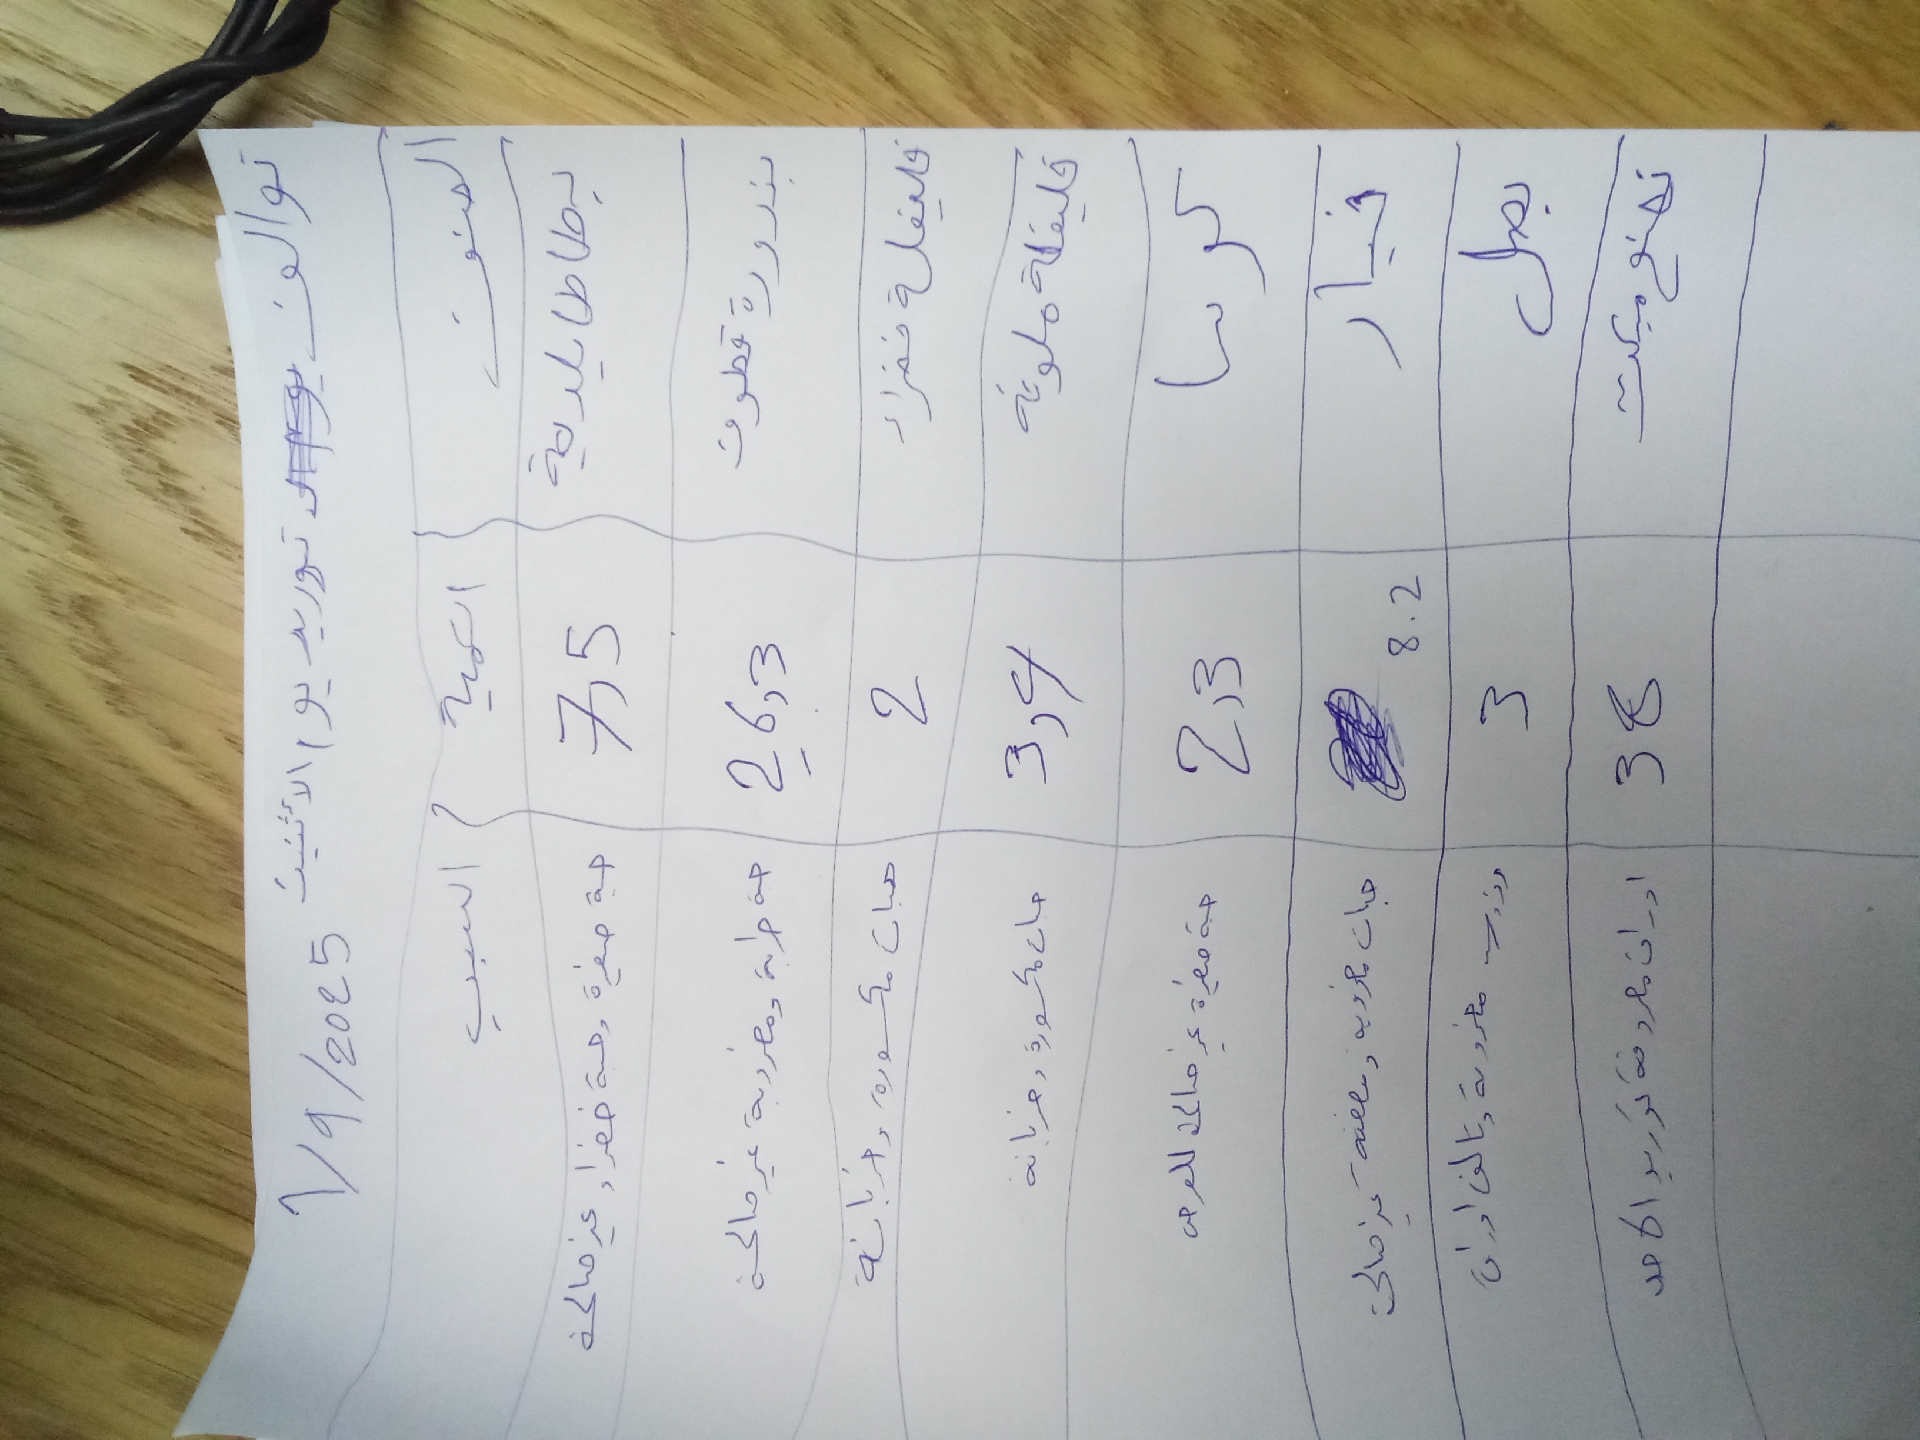 توالف توريد يوم الاثنين 1/9/2025
الصنف الكمية السبب
بطاطا بلدية 7,5 حبة صغيرة وحبة خضراء غير صالحة
بندورة قطوف 26,3 حبة خرابة ومضروبة غير صالحة
فليفلة خضراء 2 حبات مكسورة وخربانة
فليفلة ملونة 3,4 حبات مكسورة وخربانة
كوسا 2,3 حبة صغيرة غير صالحة للعرض
خيار 8.2 حبات مضروبة ومعفنة غير صالحة
بصل 3 مضروبة وتالف
نعنع ميكت 38 توريد الاحد